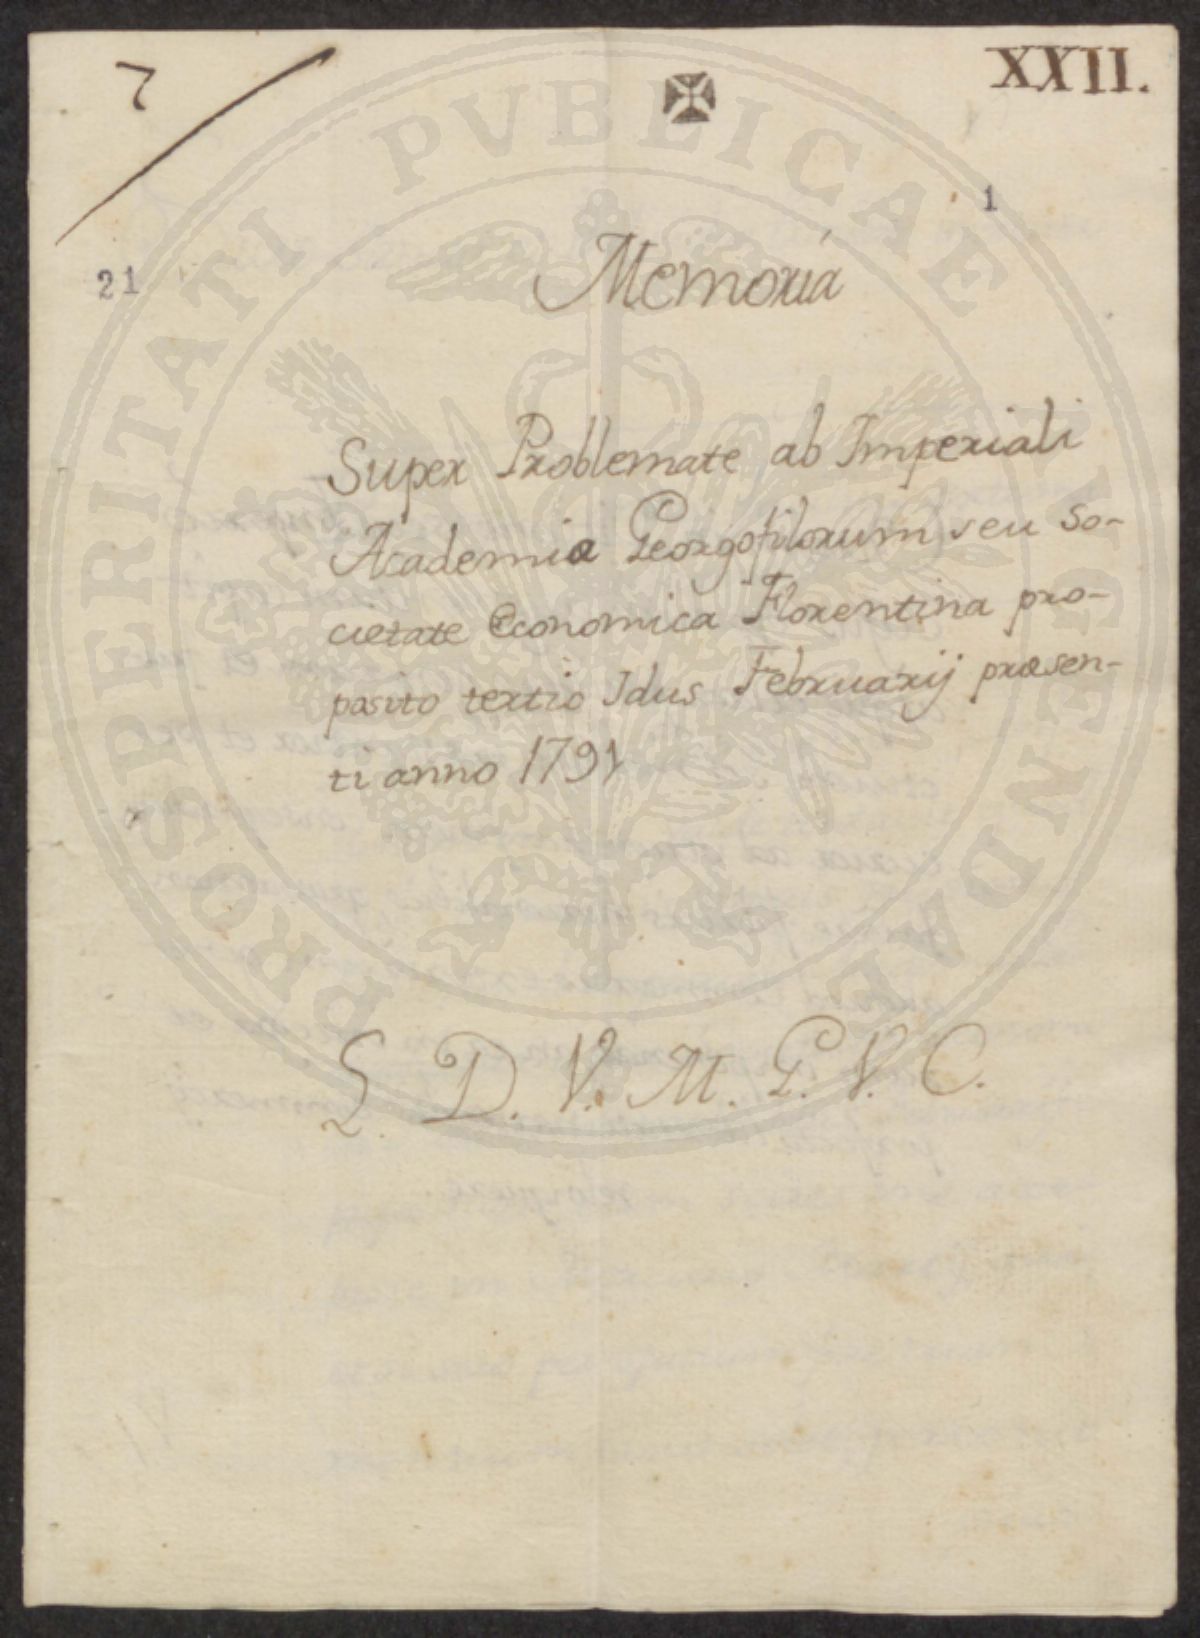 7
XXII.
1
21
Memoria
Super Problemate ab Imperiali
Academia Georgofilorum seu So-
cietate Economica Florentina pro-
posito tertio Idus Februarij præsen-
ti anno 1791
L. D. V. M. G. V. C.
PROSPERITATI PVBLICAE AVGENDAE